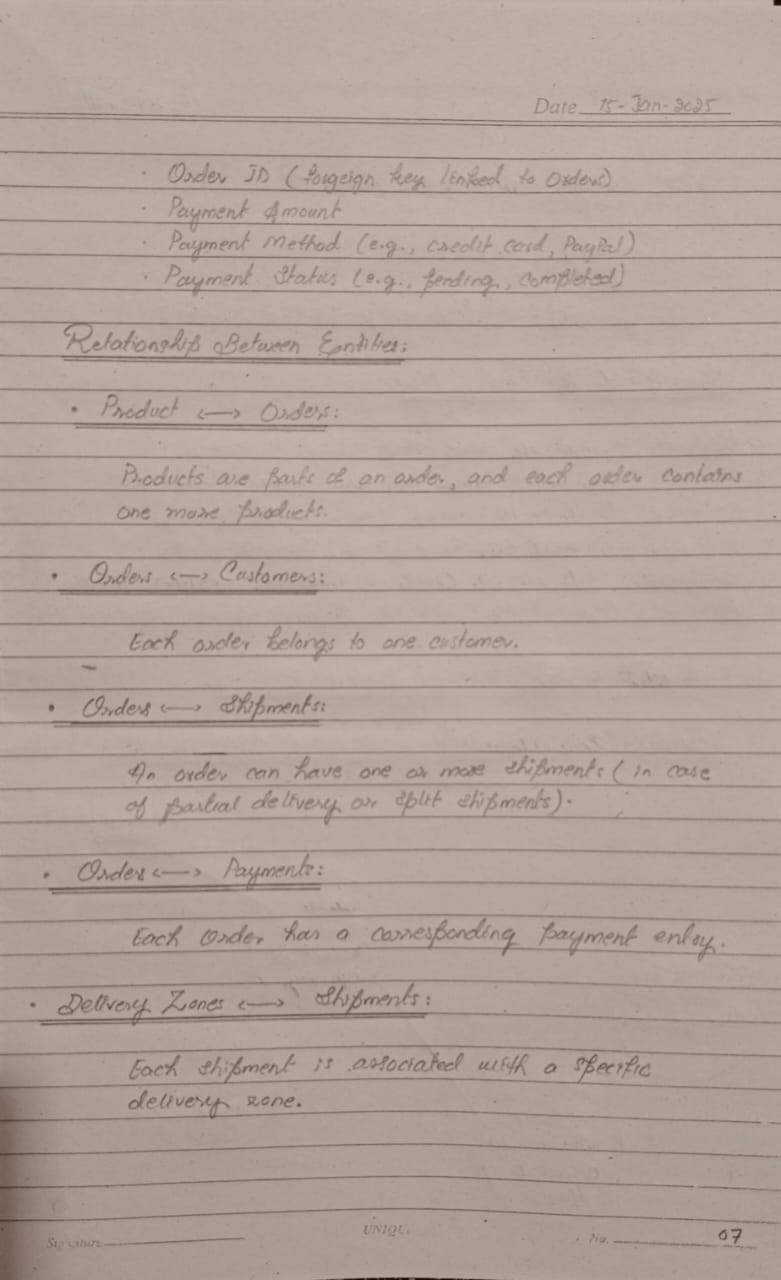 Date 15-Jan-2025
· Order ID (forgeign key linked to Orders)
· Payment Amount
· Payment Method (e.g., credit card, PayPal)
· Payment Status (e.g., pending, completed)
Relationship Between Entities:
• Product <—> Orders:
Products are parts of an order, and each order contains
one more products.
• Orders <—> Customers:
Each order belongs to one customer.
• Orders <—> Shipments:
An order can have one or more shipments (in case
of partial delivery or split shipments).
• Orders <—> Payments:
Each Order has a corresponding payment entry.
• Delivery Zones <—> Shipments:
Each shipment is associated with a specific
delivery zone.
Signature
UNIQU.
No. 07